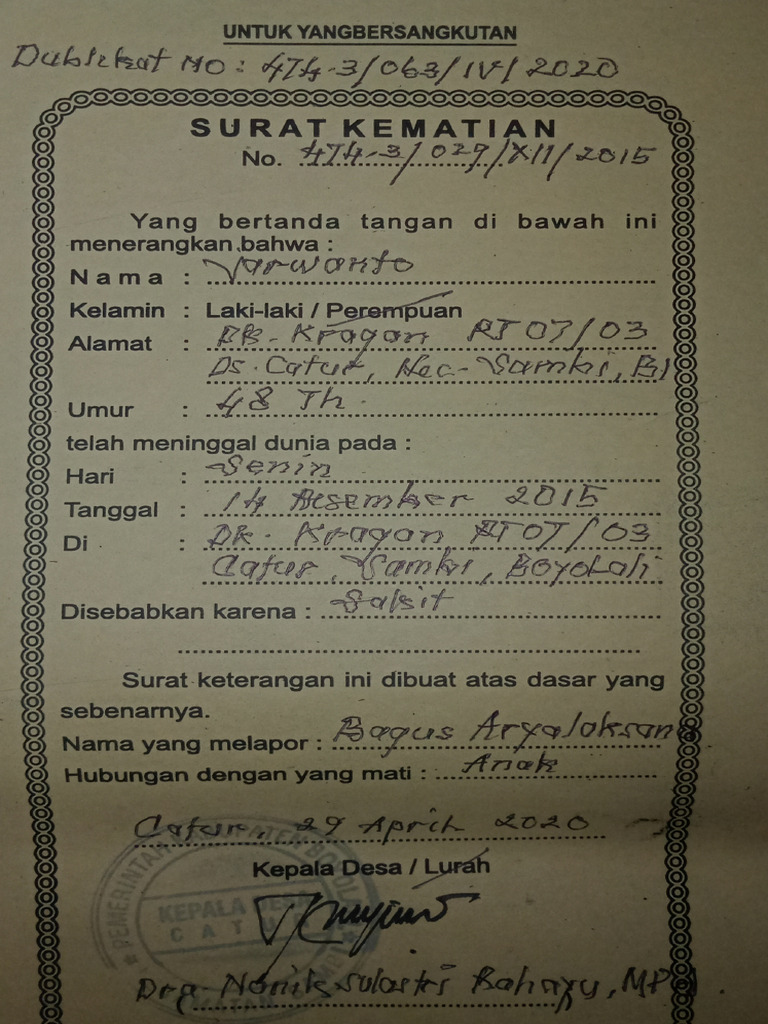 UNTUK YANGBERSANGKUTAN
Dublikat NO : 474-3/063/IV/2020
SURAT KEMATIAN
No. 474-3/029/XII/2015
Yang bertanda tangan di bawah ini
menerangkan bahwa :
Nama : Sarwanto
Kelamin : Laki-laki / Perempuan
Alamat : Dk. Kragan RT 07/03
Ds. Catur, Kec. Sambi, Bl
Umur : 48 Th.
telah meninggal dunia pada :
Hari : Senin
Tanggal : 14 Desember 2015
Di : Dk. Kragan RT 07/03
Catur, Sambi, Boyolali
Disebabkan karena : Sakit
Surat keterangan ini dibuat atas dasar yang
sebenarnya.
Nama yang melapor : Bagus Aryalaksana
Hubungan dengan yang mati : Anak
Catur, 29 April 2020
Kepala Desa / Lurah
PEMERINTAH KABUPATEN BOYOLALI
KEPALA DESA
CATUR
Drg. Nanik Sulastri Bahayu, MPH.